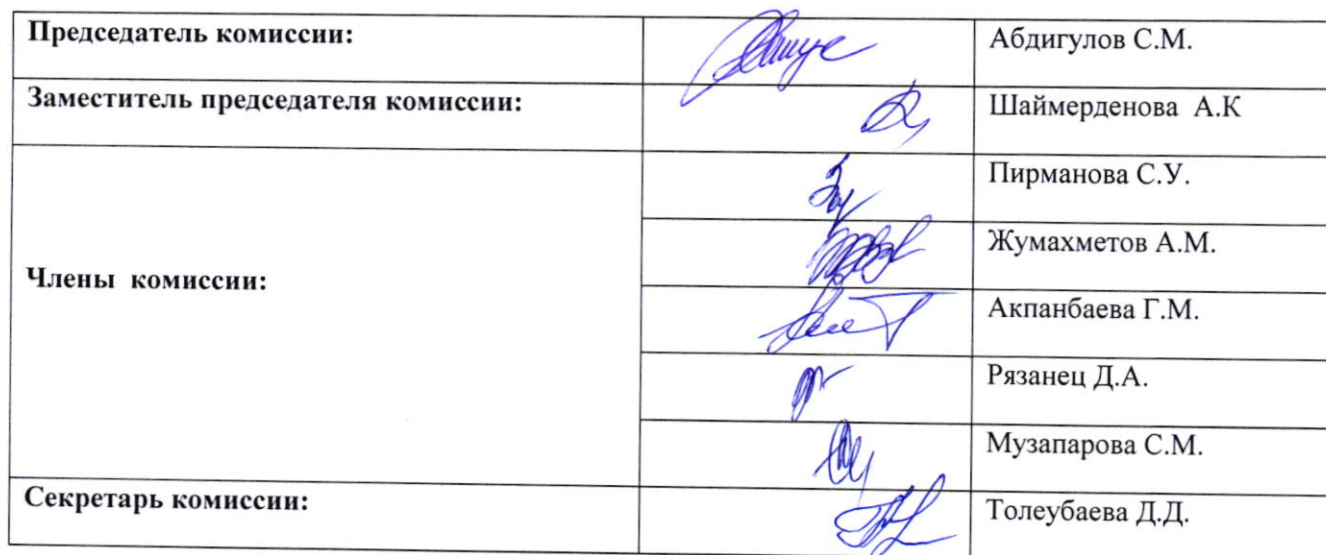 Председатель комиссии: Абдигулов С.М.
Заместитель председателя комиссии: Шаймерденова А.К
Пирманова С.У.
Жумахметов А.М.
Члены комиссии:
Акпанбаева Г.М.
Рязанец Д.А.
Музапарова С.М.
Секретарь комиссии: Толеубаева Д.Д.